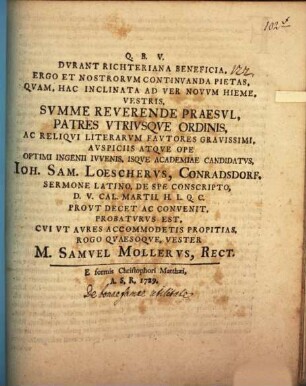 102
Q. B. V.
DVRANT RICHTERIANA BENEFICIA,
ERGO ET NOSTRORVM CONTINVANDA PIETAS,
QVAM, HAC INCLINATA AD VER NOVVM HIEME,
VESTRIS,
SVMME REVERENDE PRAESVL,
PATRES VTRIVSQVE ORDINIS,
AC RELIQVI LITERARVM FAVTORES GRAVISSIMI,
AVSPICIIS ATQVE OPE
OPTIMI INGENII IVVENIS, ISQVE ACADEMIAE CANDIDATVS,
IOH. SAM. LOESCHERVS, CONRADSDORF.
SERMONE LATINO, DE SPE CONSCRIPTO,
D. V. CAL. MARTII. H. L. Q. C.
PROVT DECET AC CONVENIT,
PROBATVRVS EST,
CVI VT AVRES ACCOMMODETIS PROPITIAS,
ROGO QVAESOQVE, VESTER
M. SAMVEL MOLLERVS, RECT.
E formis Christophori Matthæi,
A. S. R. 1729.